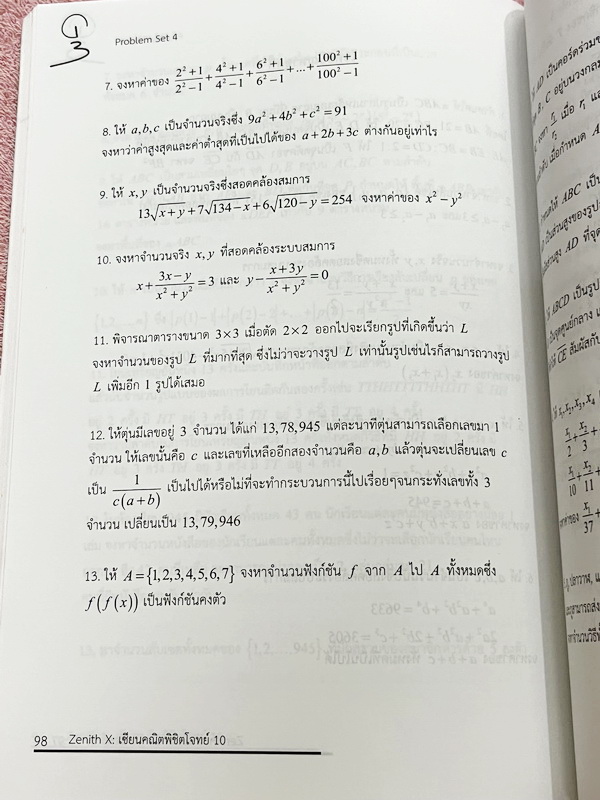 G
3
Problem Set 4
7. จงหาค่าของ (2²+1)/(2²−1) + (4²+1)/(4²−1) + (6²+1)/(6²−1) + ... + (100²+1)/(100²−1)
8. ให้ a,b,c เป็นจำนวนจริงซึ่ง 9a²+4b²+c²=91
จงหาว่าค่าสูงสุดและค่าต่ำสุดที่เป็นไปได้ของ a+2b+3c ต่างกันอยู่เท่าไร
9. ให้ x,y เป็นจำนวนจริงซึ่งสอดคล้องสมการ
13√(x+y)+7√(134−x)+6√(120−y)=254 จงหาค่าของ x²−y²
10. จงหาจำนวนจริง x,y ที่สอดคล้องระบบสมการ
x+(3x−y)/(x²+y²)=3 และ y−(x+3y)/(x²+y²)=0
11. พิจารณาตารางขนาด 3×3 เมื่อตัด 2×2 ออกไปจะเรียกรูปที่เกิดขึ้นว่า L
จงหาจำนวนของรูป L ที่มากที่สุด ซึ่งไม่ว่าจะวางรูป L เท่านั้นรูปเช่นไรก็สามารถวางรูป
L เพิ่มอีก 1 รูปได้เสมอ
12. ให้ตุ่นมีเลขอยู่ 3 จำนวน ได้แก่ 13,78,945 แต่ละนาทีตุ่นสามารถเลือกเลขมา 1
จำนวน ให้เลขนั้นคือ c และเลขที่เหลืออีกสองจำนวนคือ a,b แล้วตุ่นจะเปลี่ยนเลข c
เป็น 1/(c(a+b)) เป็นไปได้หรือไม่ที่จะทำกระบวนการนี้ไปเรื่อยๆจนกระทั่งเลขทั้ง 3
จำนวน เปลี่ยนเป็น 13,79,946
13. ให้ A={1,2,3,4,5,6,7} จงหาจำนวนฟังก์ชัน f จาก A ไป A ทั้งหมดซึ่ง
f(f(x)) เป็นฟังก์ชันคงตัว
98 Zenith X: เซียนคณิตพิชิตโจทย์ 10